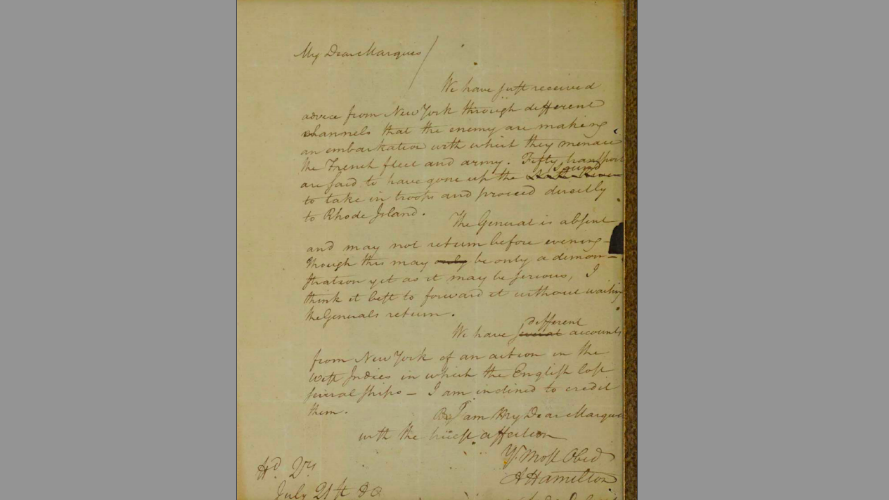 My Dear Marquis
We have just received
advice from New York through different
channels that the enemy are making
an embarkation with which they menace
the French fleet and army. Fifty transports
are said to have gone up the Sound
to take in troops and proceed directly
to Rhode Island.
The General is absent
and may not return before evening –
though this may only be only a demon–
stration yet as it may be serious, I
think it best to forward it without waiting
the Generals return.
We have different accounts
from New York of an action in the
West Indies in which the English lost
several ships – I am inclined to credit
them.
I am My Dear Marquis
with the truest affection
Yr Most Obed
A Hamilton
Hd. Qrs
July 21st 80